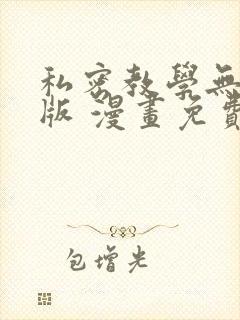 私密教學無
版 漫畫免費
包增光